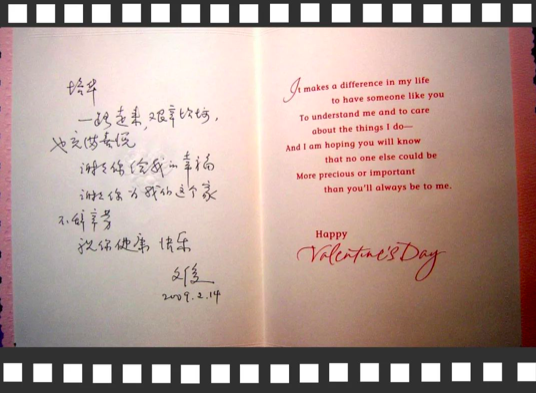 培华
一路走来，艰辛坎坷，
也充满喜悦
谢谢你给我的幸福
谢谢你为我们这个家
不辞辛劳
祝你健康 快乐
文俊
2009.2.14
It makes a difference in my life
to have someone like you
To understand me and to care
about the things I do—
And I am hoping you will know
that no one else could be
More precious or important
than you'll always be to me.
Happy
Valentine's Day